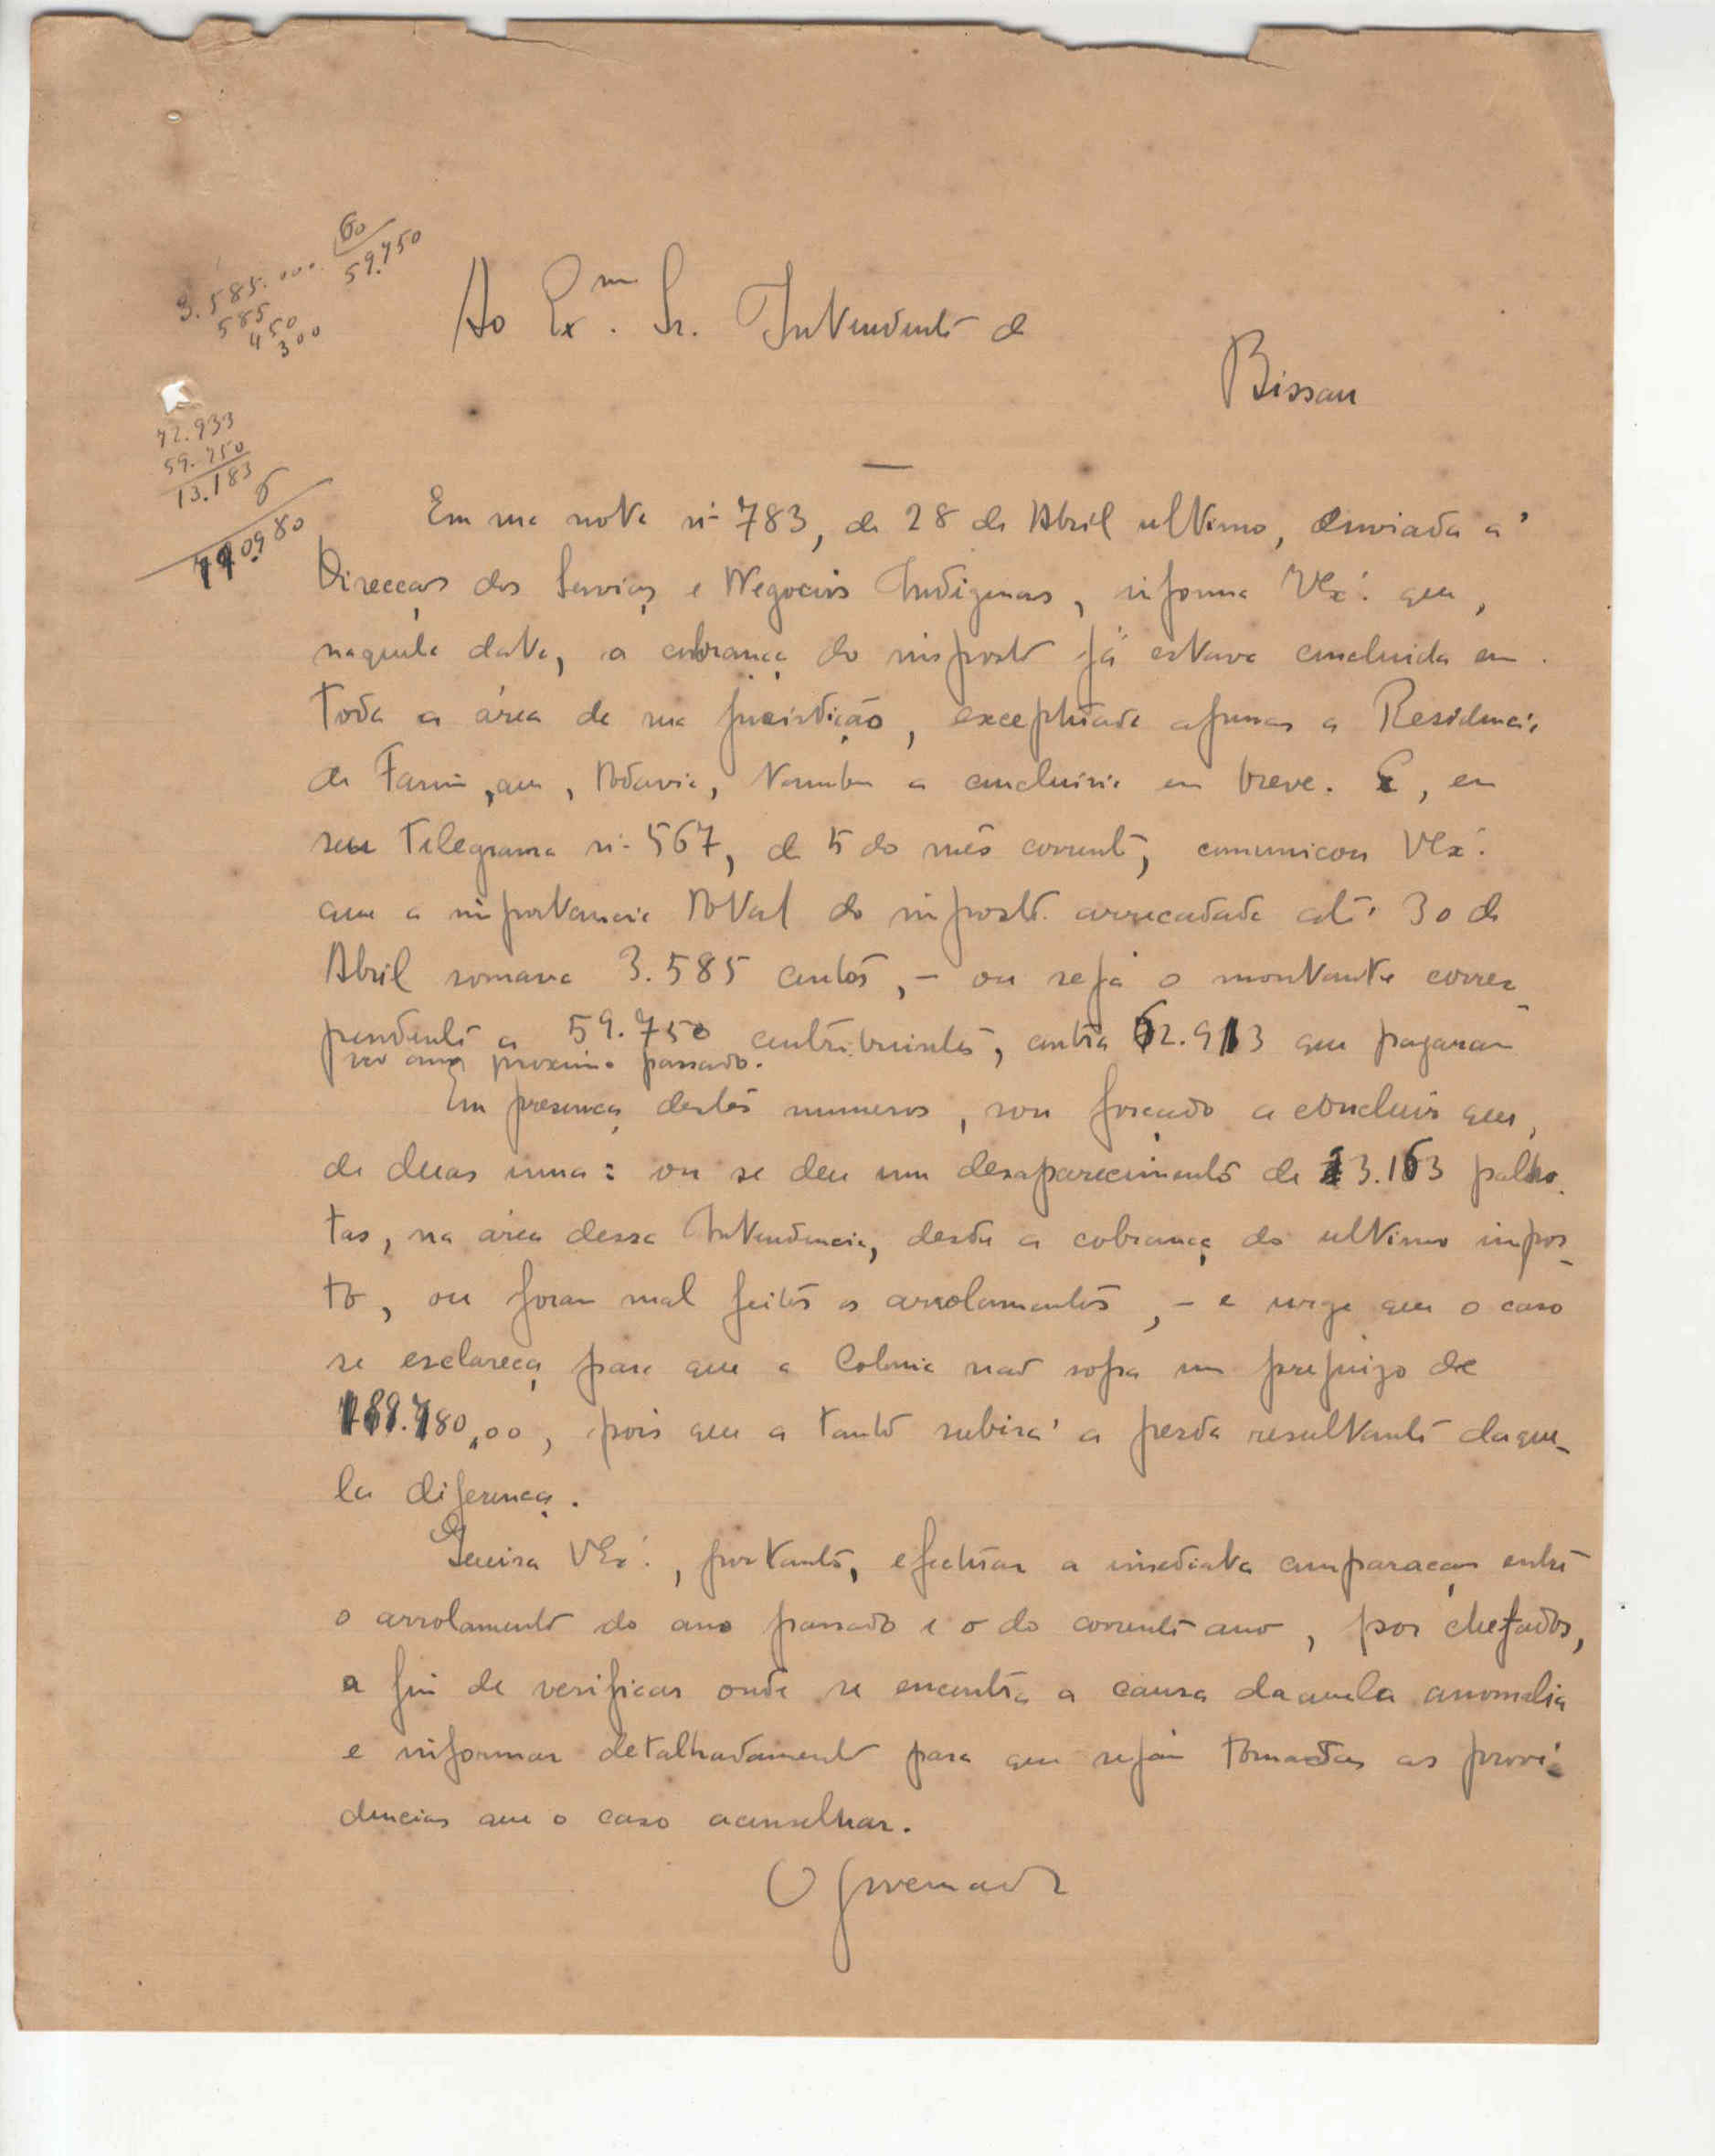 3.585.000 60
585 59.750
450
300
72.933
59.750
13.183
6
Ao Exmo. Sr. Intendente de
Bissau
Em sua nota nº 783, de 28 de Abril ultimo, enviada á
Direcção dos Serviços e Negocios Indigenas, informa VExª. que,
naquela data, a cobrança do imposto já estava concluida em
toda a área de sua jurisdição, exceptuada apenas a Residencia
de Farim, que, todavia, tambem a concluiria em breve. E, em
seu telegrama nº 567, de 5 do mês corrente, comunicou VExª.
que a importancia total do imposto arrecadada até 30 de
Abril somava 3.585 contos, - ou seja o montante corres-
pondente a 59.750 contribuintes, contra 2.913 que pagaram
no ano proximo passado.
Em presença destes numeros, sou forçado a concluir que,
de duas uma: ou se deu um desaparecimento de 3.163 palho-
tas, na área dessa Intendencia, desde a cobrança do ultimo impos-
to, ou foram mal feitos os arrolamentos, - e urge que o caso
se esclareça para que a Colonia não sofra um prejuizo de
189.780,00, pois que a tanto subirá a perda resultante daque-
la diferença.
Queira VExª., portanto, efectuar a imediata comparação entre
o arrolamento do ano passado e o do corrente ano, por chefados,
a fim de verificar onde se encontra a causa daquela anomalia
e informar detalhadamente para que sejam tomadas as provi-
dencias que o caso aconselhar.
O Governador